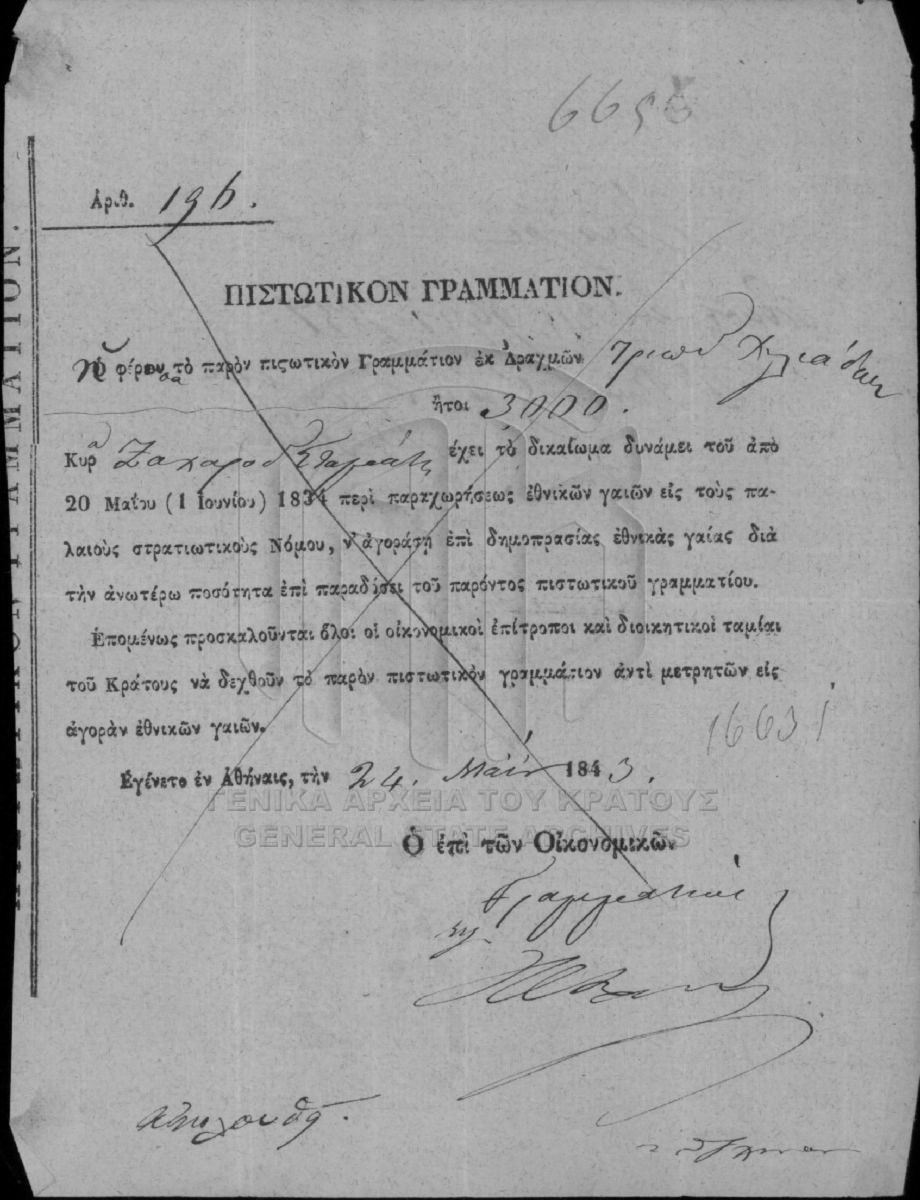 665
Ἀριθ. 196.
ΠΙΣΤΩΤΙΚΟΝ ΓΡΑΜΜΑΤΙΟΝ.
Ἡ φέρουσα τὸ παρὸν πιςωτικὸν Γραμμάτιον ἐκ Δραχμῶν τριῶν χιλιάδων
ἤτοι 3000.
Κυρα Ζαχαροῦ Σταμάτη ἔχει τὸ δικαίωμα δυνάμει τοῦ ἀπὸ
20 Μαΐου (1 Ἰουνίου) 1834 περὶ παραχωρήσεως ἐθνικῶν γαιῶν εἰς τοὺς πα-
λαιοὺς στρατιωτικοὺς Νόμου, ν' ἀγοράσῃ ἐπὶ δημοπρασίας ἐθνικὰς γαίας διὰ
τὴν ἀνωτέρω ποσότητα ἐπὶ παραδόσει τοῦ παρόντος πιστωτικοῦ γραμματίου.
Ἑπομένως προσκαλοῦνται ὅλοι οἱ οἰκονομικοὶ ἐπίτροποι καὶ διοικητικοὶ ταμίαι
τοῦ Κράτους νὰ δεχθοῦν τὸ παρὸν πιστωτικὸν γραμμάτιον ἀντὶ μετρητῶν εἰς
ἀγορὰν ἐθνικῶν γαιῶν.
16631
Ἐγένετο ἐν Ἀθήναις, τὴν 24. Μαΐου 1843.
ΓΕΝΙΚΑ ΑΡΧΕΙΑ ΤΟΥ ΚΡΑΤΟΥΣ
GENERAL STATE ARCHIVES
Ὁ ἐπὶ τῶν Οἰκονομικῶν
Γραμματεὺς
ΠΙΣΤΩΤΙΚΟΝ ΓΡΑΜΜΑΤΙΟΝ.